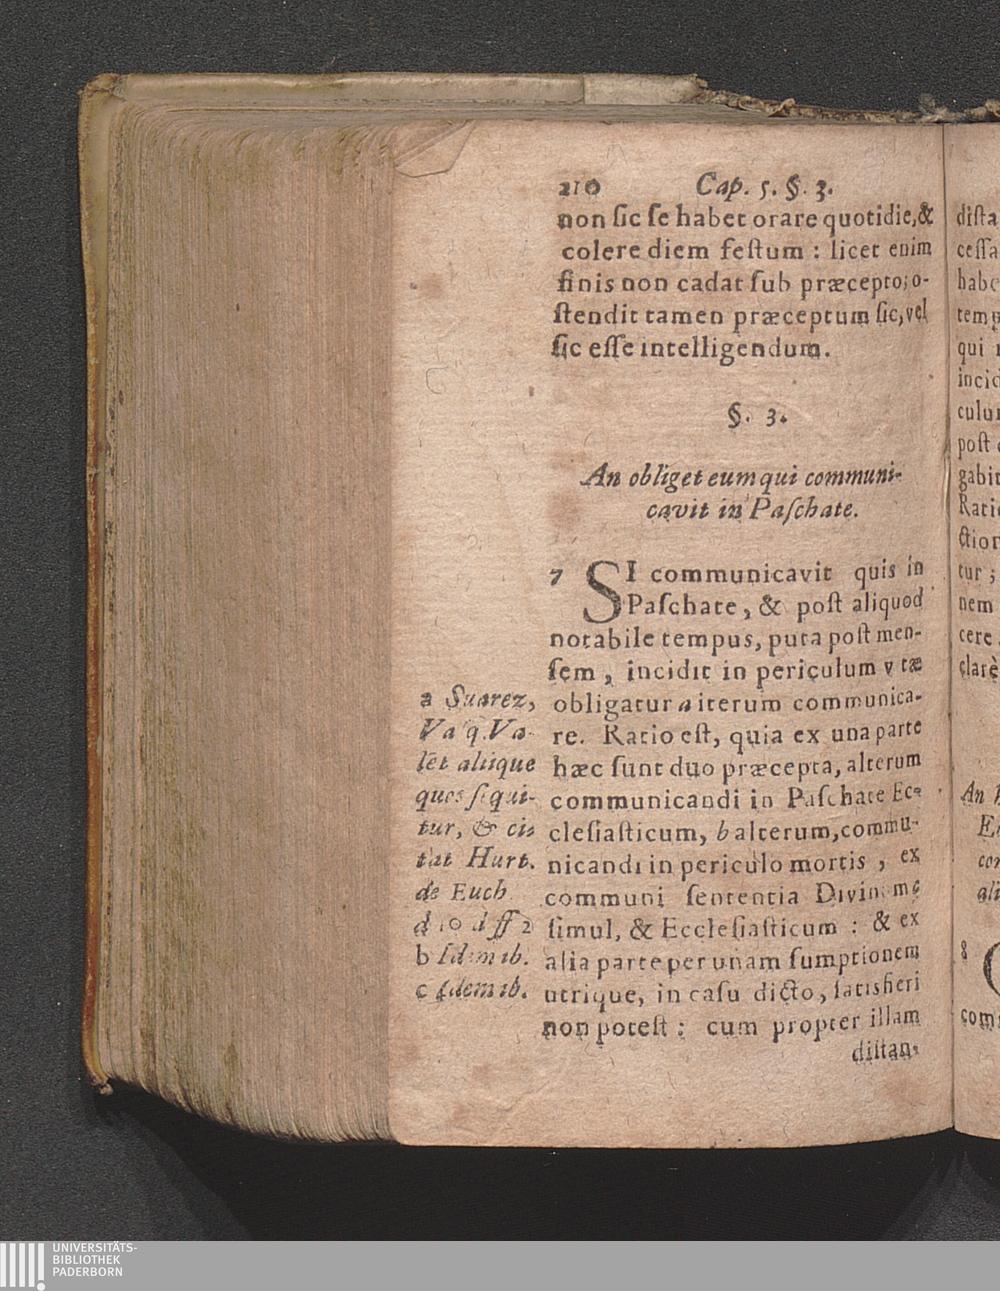 210 Cap. 5. §. 3.
non ſic ſe habet orare quotidie, &
colere diem feſtum : licet enim
finis non cadat ſub præcepto; o-
ſtendit tamen præceptum ſic, vel
ſic eſſe intelligendum.
§. 3.
An obliget eum qui communi-
cavit in Paſchate.
7 SI communicavit quis in
Paſchate, & poſt aliquod
notabile tempus, puta poſt men-
ſem, incidit in periculum vitæ
obligatur a iterum communica-
re. Ratio eſt, quia ex una parte
hæc ſunt duo præcepta, alterum
communicandi in Paſchate Ec-
cleſiaſticum, b alterum, commu-
nicandi in periculo mortis, ex
communi ſententia Divinum
ſimul, & Eccleſiaſticum : & ex
alia parte per unam ſumptionem
utrique, in caſu dicto, ſatisfieri
non poteſt : cum propter illam
diſtan-
a Suarez,
Vaſq. Va-
let aliique
quos ſequi-
tur, & ci-
tat Hurt.
de Euch
d 10 diff 2
b Idem ib.
c Idem ib.
diſta
ceſſa
habe
temp
qui
incid
culu
poſt
gabit
Ratio
ctior
tur ;
nem
cere
clarè
An
com
ali
8
com
UNIVERSITÄTS-
BIBLIOTHEK
PADERBORN